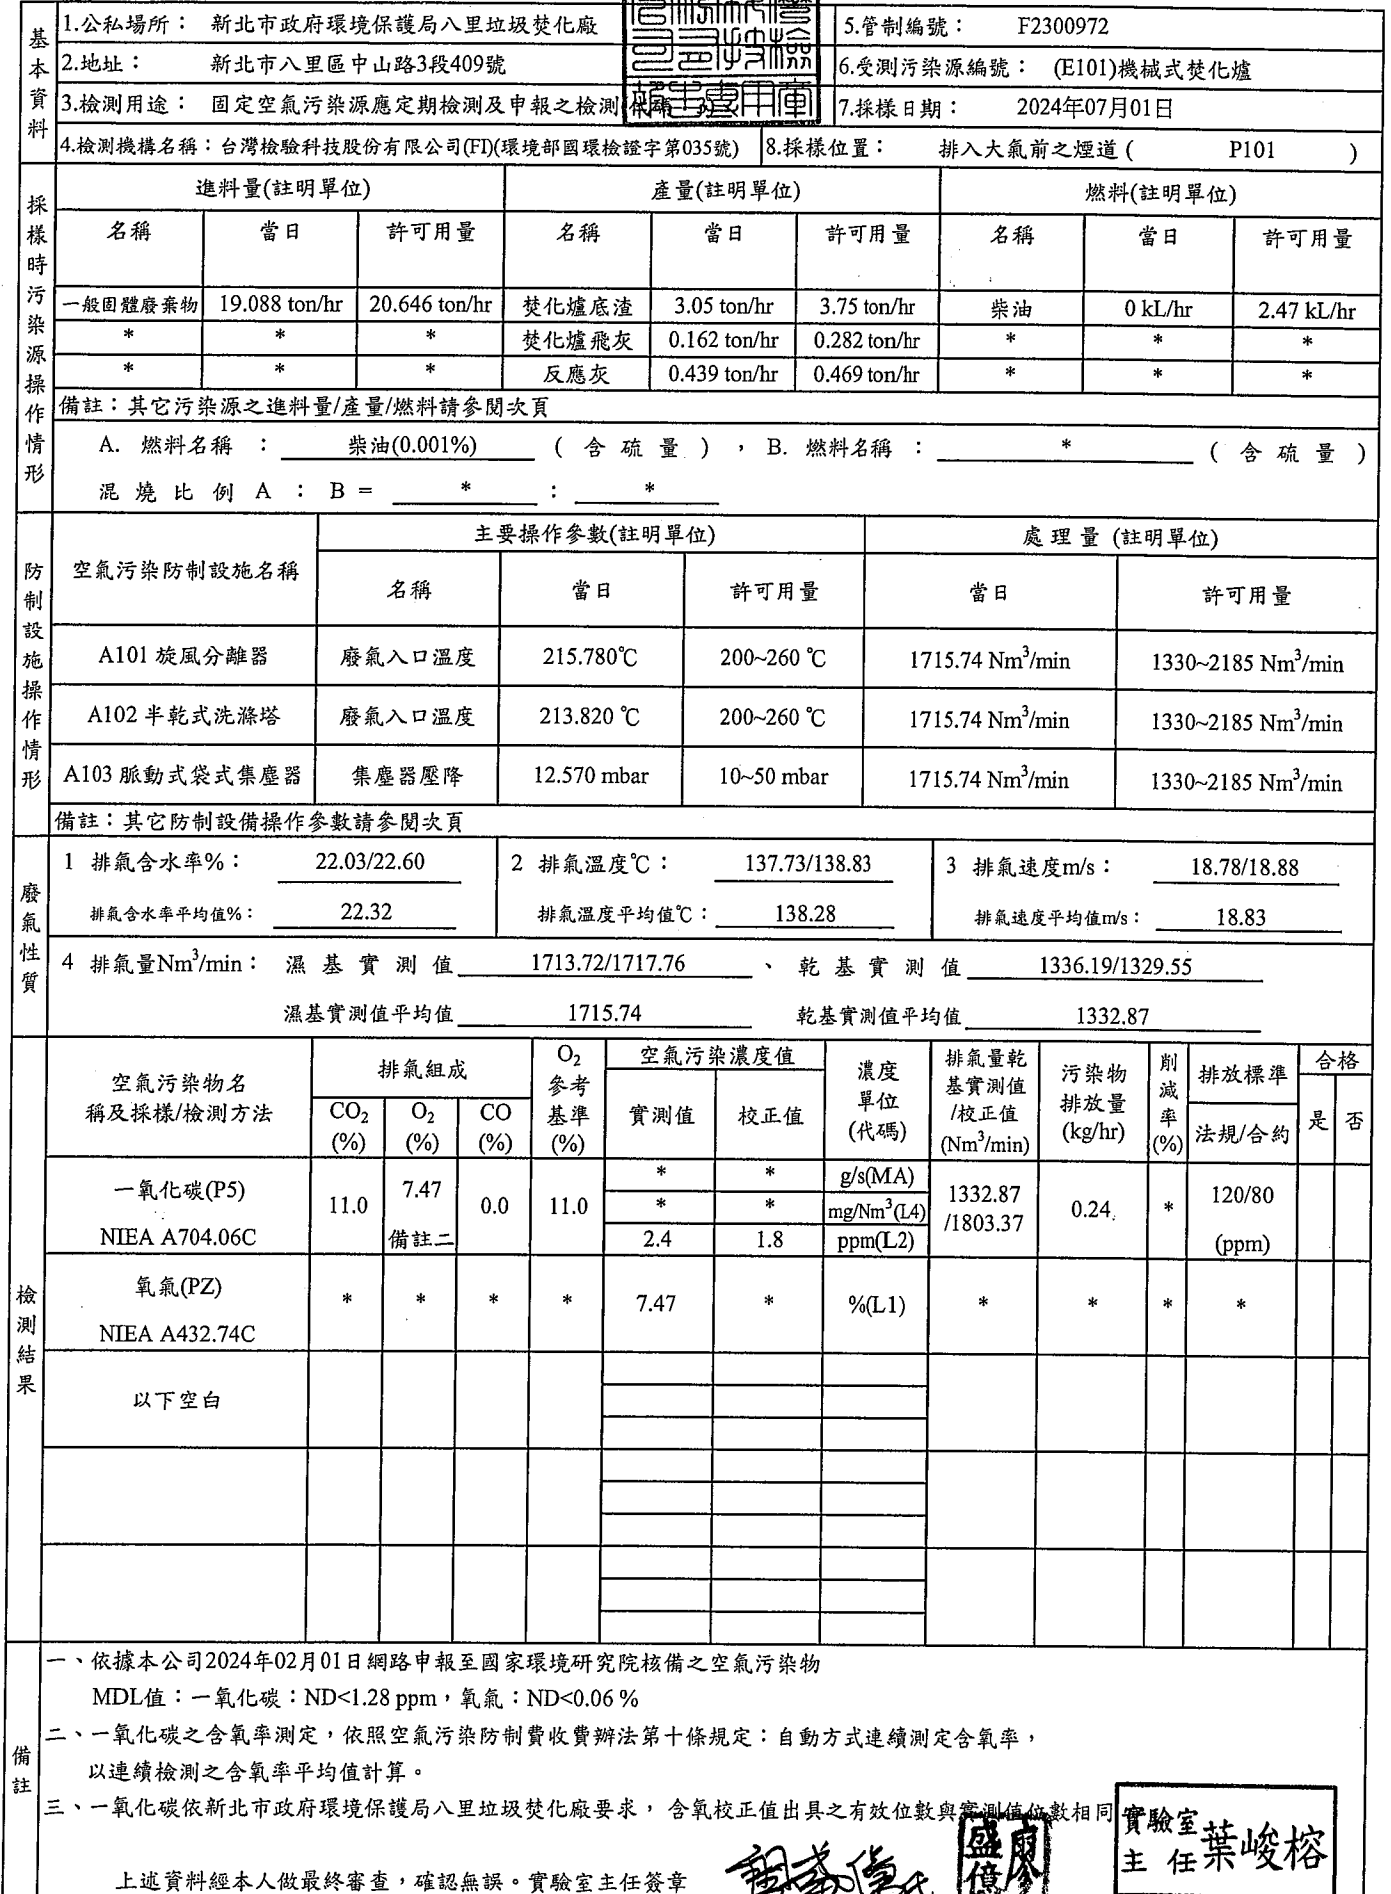 基本資料
1.公私場所： 新北市政府環境保護局八里垃圾焚化廠
5.管制編號： F2300972
2.地址： 新北市八里區中山路3段409號
6.受測污染源編號： (E101)機械式焚化爐
3.檢測用途： 固定空氣污染源應定期檢測及申報之檢測
7.採樣日期： 2024年07月01日
4.檢測機構名稱：台灣檢驗科技股份有限公司(FI)(環境部國環檢證字第035號) 8.採樣位置： 排入大氣前之煙道 ( P101 )
採樣時污染源操作情形
進料量(註明單位) 產量(註明單位) 燃料(註明單位)
名稱 當日 許可用量 名稱 當日 許可用量 名稱 當日 許可用量
一般固體廢棄物 19.088 ton/hr 20.646 ton/hr 焚化爐底渣 3.05 ton/hr 3.75 ton/hr 柴油 0 kL/hr 2.47 kL/hr
* * * 焚化爐飛灰 0.162 ton/hr 0.282 ton/hr * * *
* * * 反應灰 0.439 ton/hr 0.469 ton/hr * * *
備註：其它污染源之進料量/產量/燃料請參閱次頁
A. 燃料名稱 ： 柴油(0.001%) ( 含 硫 量 ) ，B. 燃料名稱 ： * ( 含 硫 量 )
混 燒 比 例 A ： B = * ： *
防制設施操作情形
空氣污染防制設施名稱 主要操作參數(註明單位) 處理量 (註明單位)
名稱 當日 許可用量 當日 許可用量
A101 旋風分離器 廢氣入口溫度 215.780℃ 200~260 ℃ 1715.74 Nm³/min 1330~2185 Nm³/min
A102 半乾式洗滌塔 廢氣入口溫度 213.820 ℃ 200~260 ℃ 1715.74 Nm³/min 1330~2185 Nm³/min
A103 脈動式袋式集塵器 集塵器壓降 12.570 mbar 10~50 mbar 1715.74 Nm³/min 1330~2185 Nm³/min
備註：其它防制設備操作參數請參閱次頁
廢氣性質
1 排氣含水率%： 22.03/22.60 2 排氣溫度℃： 137.73/138.83 3 排氣速度m/s： 18.78/18.88
排氣含水率平均值%： 22.32 排氣溫度平均值℃： 138.28 排氣速度平均值m/s： 18.83
4 排氣量Nm³/min： 濕 基 實 測 值 1713.72/1717.76 、 乾 基 實 測 值 1336.19/1329.55
濕基實測值平均值 1715.74 乾基實測值平均值 1332.87
檢測結果
空氣污染物名稱及採樣/檢測方法 排氣組成 O₂參考基準(%) 空氣污染濃度值 濃度單位(代碼) 排氣量乾基實測值/校正值(Nm³/min) 污染物排放量(kg/hr) 削減率(%) 排放標準 合格
CO₂(%) O₂(%) CO(%) 實測值 校正值 法規/合約 是 否
一氧化碳(P5) 11.0 7.47 0.0 11.0 * * g/s(MA) 1332.87/1803.37 0.24 * 120/80
* * mg/Nm³(L4)
NIEA A704.06C 備註二 2.4 1.8 ppm(L2) (ppm)
氧氣(PZ) * * * * 7.47 * %(L1) * * * *
NIEA A432.74C
以下空白
備註
一、依據本公司2024年02月01日網路申報至國家環境研究院核備之空氣污染物
MDL值：一氧化碳：ND<1.28 ppm，氧氣：ND<0.06 %
二、一氧化碳之含氧率測定，依照空氣污染防制費收費辦法第十條規定：自動方式連續測定含氧率，
以連續檢測之含氧率平均值計算。
三、一氧化碳依新北市政府環境保護局八里垃圾焚化廠要求， 含氧校正值出具之有效位數與實測值位數相同
上述資料經本人做最終審查，確認無誤。實驗室主任簽章
實驗室主任 葉峻榕